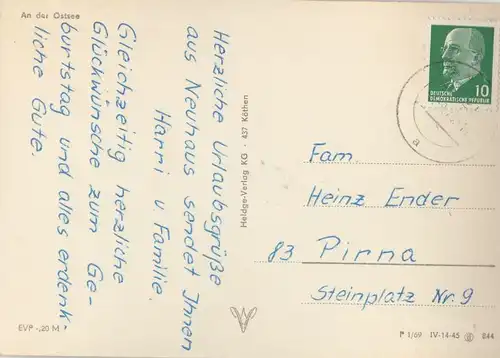 An der Ostsee
Herzliche Urlaubsgrüße
aus Neuhaus sendet Ihnen
Harri u Familie.
Gleichzeitig herzliche
Glückwünsche zum Ge-
burtstag und alles erdenk-
liche Gute.
EVP -,20 M
Heldge-Verlag KG · 437 Köthen
10
DEUTSCHE
DEMOKRATISCHE REPUBLIK
a
Fam.
Heinz Ender
83 Pirna
Steinplatz Nr. 9
P 1/69 IV-14-45 6 844